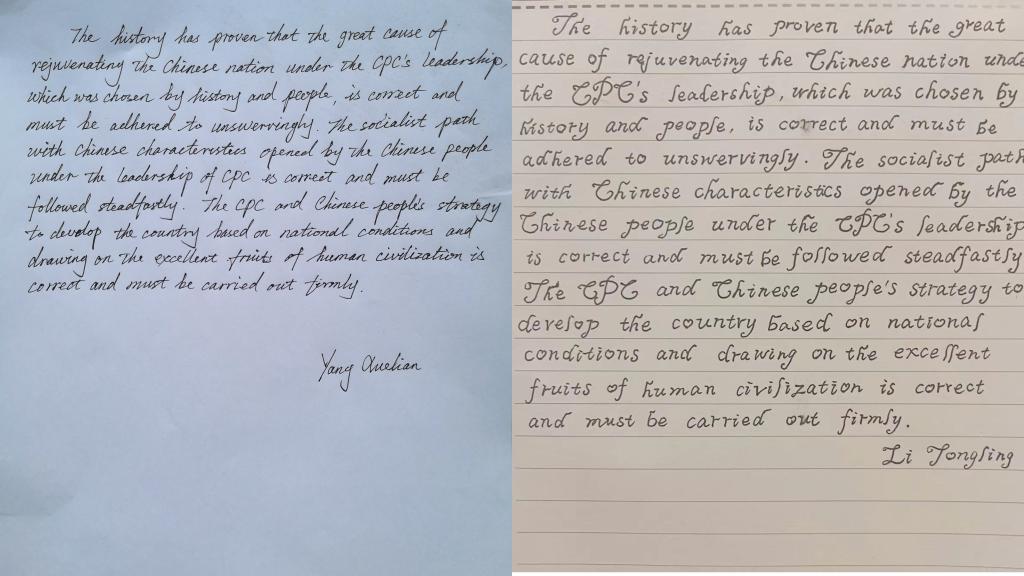 The history has proven that the great cause of
rejuvenating the Chinese nation under the CPC's leadership,
which was chosen by history and people, is correct and
must be adhered to unswervingly. The socialist path
with Chinese characteristics opened by the Chinese people
under the leadership of CPC is correct and must be
followed steadfastly. The CPC and Chinese people's strategy
to develop the country based on national conditions and
drawing on the excellent fruits of human civilization is
correct and must be carried out firmly.
Yang Xuelian
The history has proven that the great
cause of rejuvenating the Chinese nation unde
the CPC's leadership, which was chosen by
history and people, is correct and must be
adhered to unswervingly. The socialist path
with Chinese characteristics opened by the
Chinese people under the CPC's leadership
is correct and must be followed steadfastly
The CPC and Chinese people's strategy to
develop the country based on national
conditions and drawing on the excellent
fruits of human civilization is correct
and must be carried out firmly.
Li Tongling